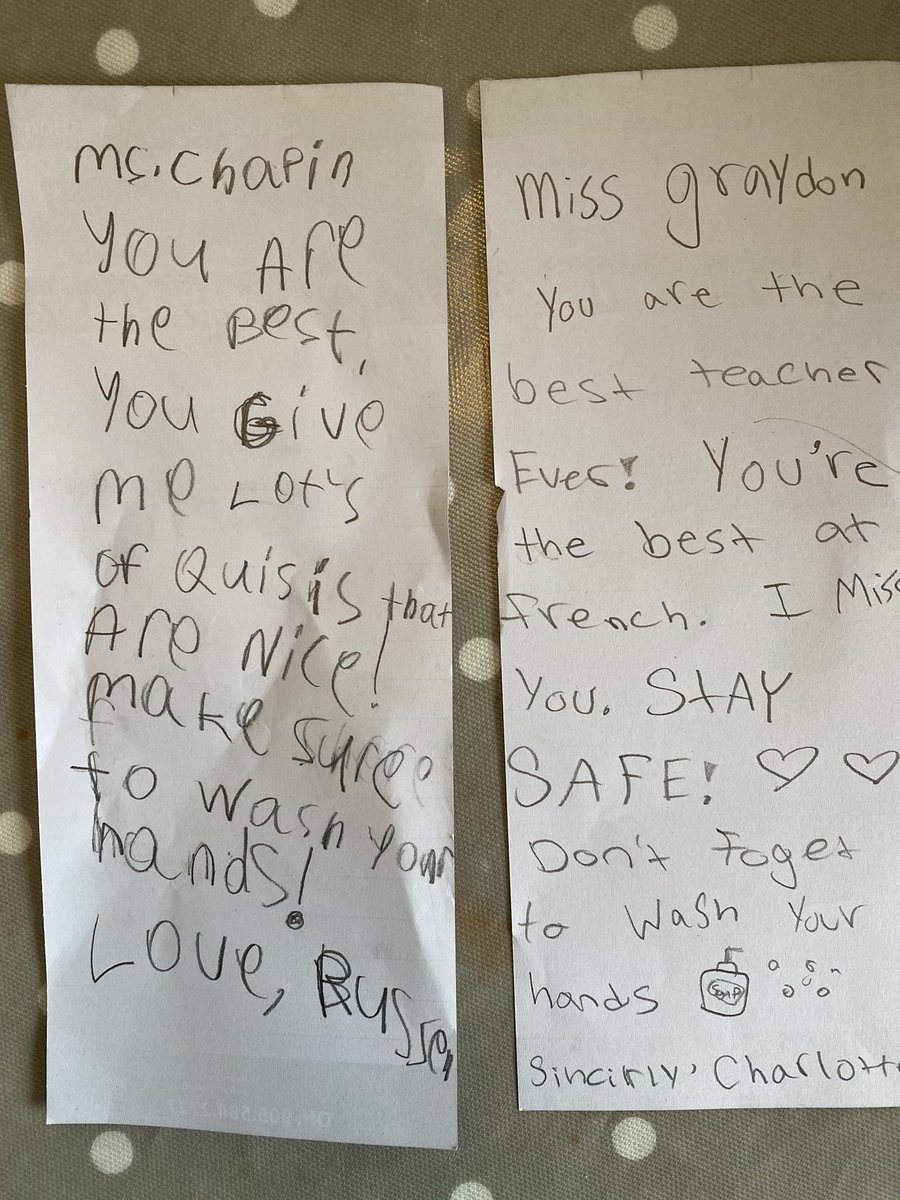 Ms. Chapin
You Are
the Best,
You Give
me Lots
of Quisis that
Are Nice!
make sure
to wash your
hands!
Love,
Miss graydon
You are the
best teacher
Ever! You're
the best at
french. I Miss
You. StAY
SAFE! ♡ ♡
Don't Foget
to wash Your
hands
Soap
Sincirly, Charlotte